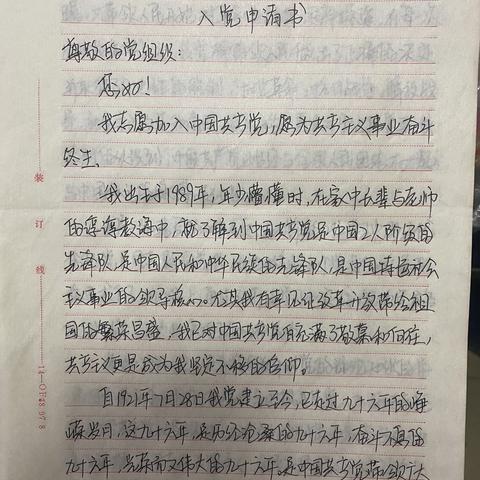 入党申请书
尊敬的党组织：
您好！
我志愿加入中国共产党，愿为共产主义事业奋斗
终生。
我出生于1989年，年少懵懂时，在家中长辈与老师
的谆谆教诲中，就了解到中国共产党是中国工人阶级的
先锋队，是中国人民和中华民族的先锋队，是中国特色社会
主义事业的领导核心。尤其我有幸见证改革开放带给祖
国的繁荣昌盛，我已对中国共产党充满了敬慕和向往，
共产主义更是成为我坚定不移的信仰。
自1921年7月28日我党建立至今，已走过九十六年的峥
嵘岁月，这九十六年，是历经沧桑的九十六年，奋斗不息的
九十六年，光荣而又伟大的九十六年，是中国共产党带领广大
装
订
线